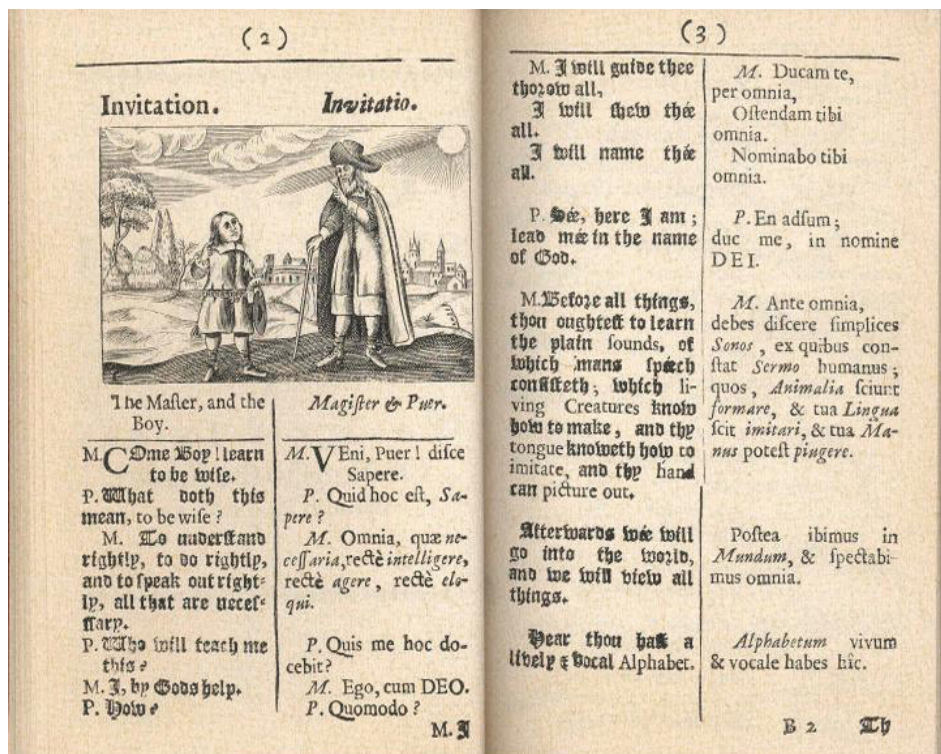 (2)
Invitation.
Invitatio.
The Maſter, and the
Boy.
M. COme Boy! learn
to be wiſe.
P. What doth this
mean, to be wiſe?
M. To underſtand
rightly, to do rightly,
and to ſpeak out right-
ly, all that are neceſ-
ſary.
P. Who will teach me
this?
M. I, by Gods help.
P. How?
Magiſter & Puer.
M. VEni, Puer! diſce
Sapere.
P. Quid hoc eſt, Sa-
pere?
M. Omnia, quæ ne-
ceſſaria, rectè intelligere,
rectè agere, rectè elo-
qui.
P. Quis me hoc do-
cebit?
M. Ego, cum DEO.
P. Quomodo?
M. I
(3)
M. I will guide thee
thorow all,
I will ſhew thée
all.
I will name thée
all.
P. Sée, here I am;
lead mée in the name
of God.
M. Before all things,
thou oughteſt to learn
the plain ſounds, of
which mans ſpéech
conſiſteth; which li-
ving Creatures know
how to make, and thy
tongue knoweth how to
imitate, and thy hand
can picture out.
Afterwards wée will
go into the world,
and we will view all
things.
Hear thou haſt a
lively & vocal Alphabet.
M. Ducam te,
per omnia,
Oſtendam tibi
omnia.
Nominabo tibi
omnia.
P. En adſum;
duc me, in nomine
DEI.
M. Ante omnia,
debes diſcere ſimplices
Sonos, ex quibus con-
ſtat Sermo humanus;
quos, Animalia ſciunt
formare, & tua Lingua
ſcit imitari, & tua Ma-
nus poteſt pingere.
Poſtea ibimus in
Mundum, & ſpectabi-
mus omnia.
Alphabetum vivum
& vocale habes hîc.
B 2
Th